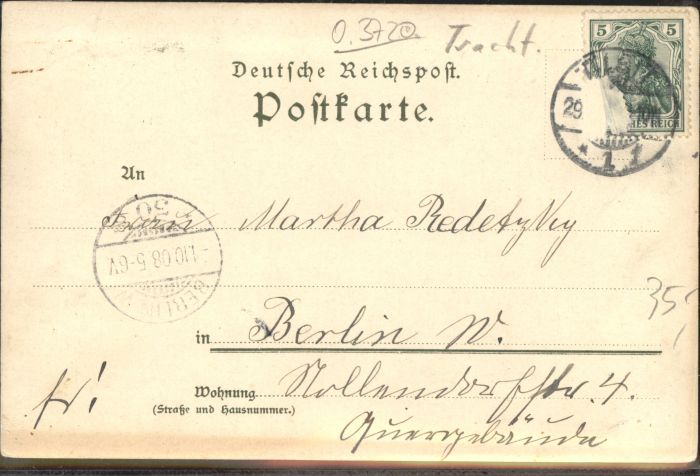 0.3720 Tracht.
5 5
Deutsche Reichspost.
Postkarte.
29.
1 1
HES REICH
An
Martha Redetzky
1.10 08.5-6V.
BERLIN
35
in Berlin W.
Wohnung Nollendorfstr. 4.
(Straße und Hausnummer.)
fr!
Quergebäude